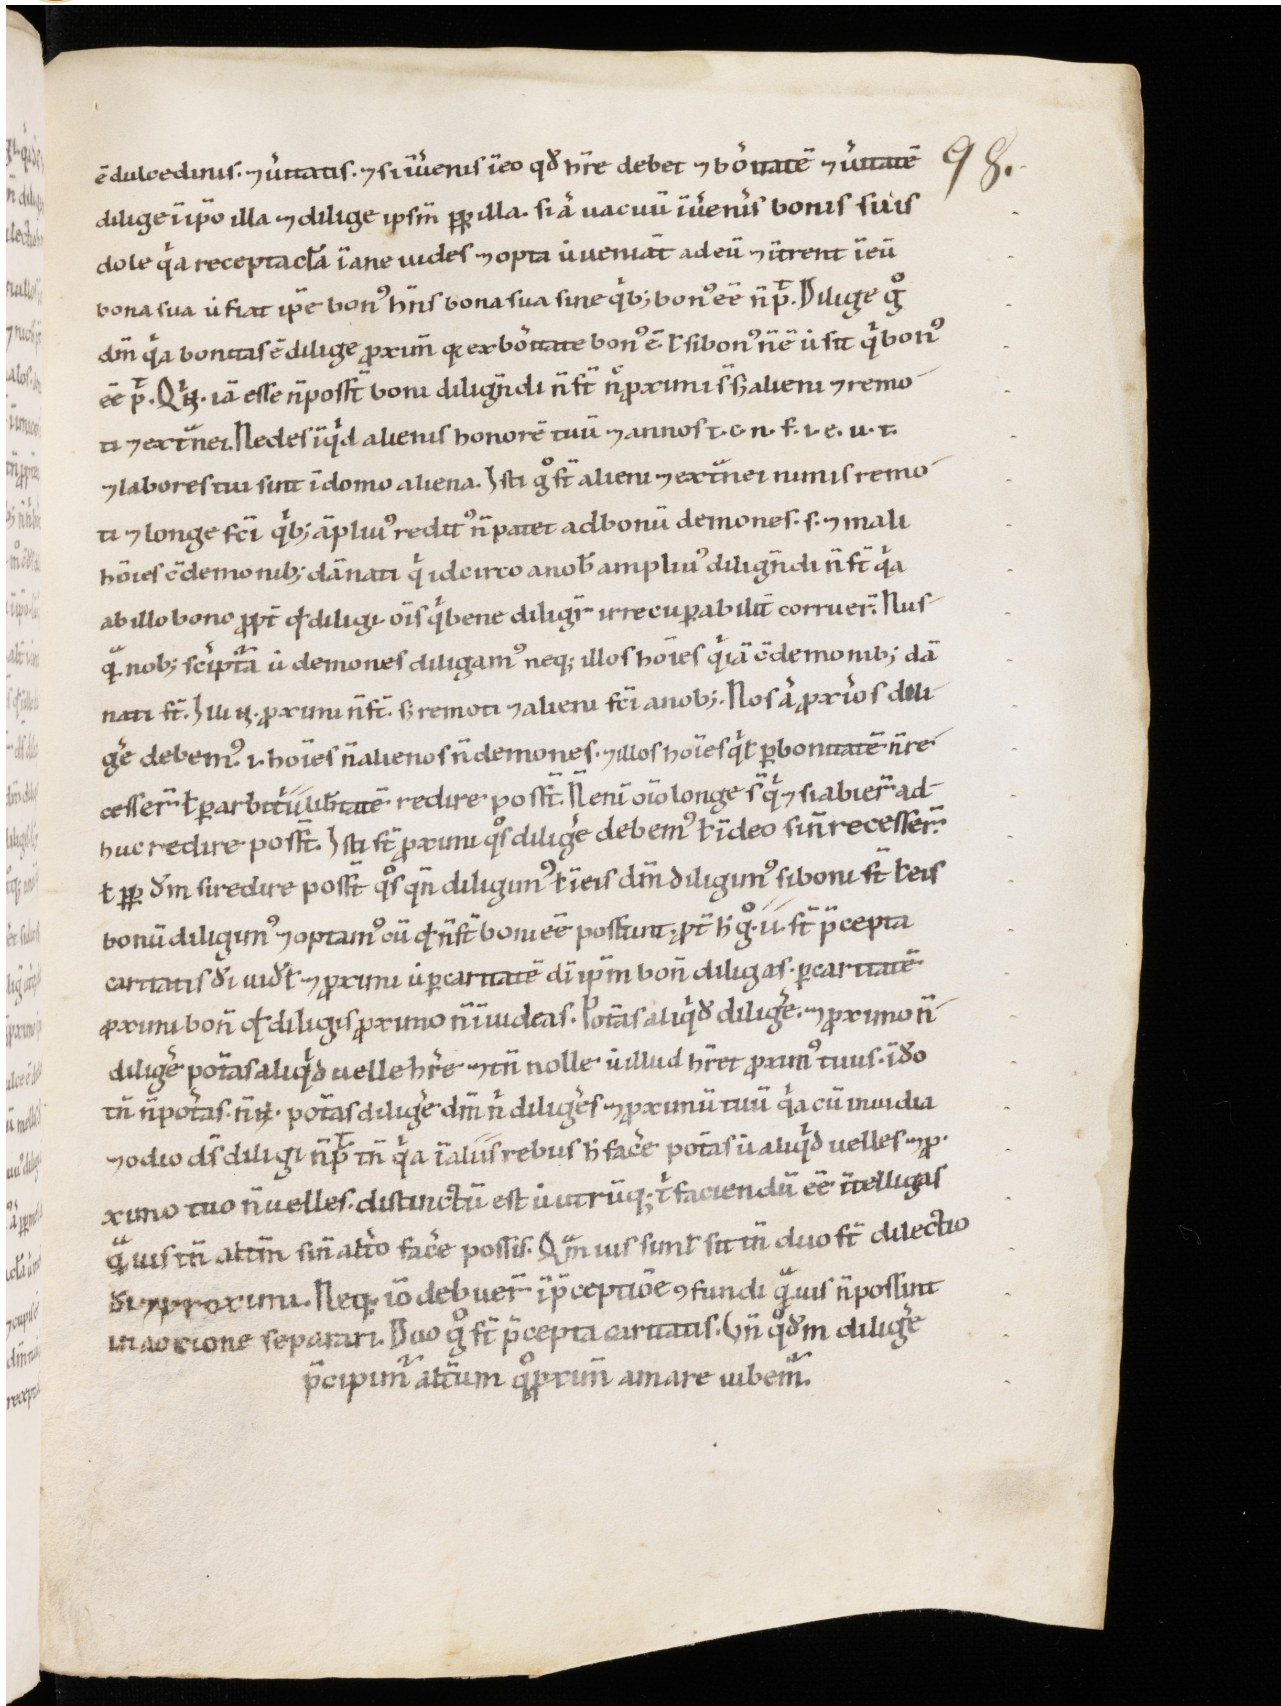 98.
ē dulcedinis. ⁊ ůitatis. ⁊ si īůenis ī eo qđ hr̄e debet ⁊ bo̓nitatē ⁊ ůitatē
dilige ī ip̄o illa ⁊ dilige ipsm̄ ꝑꝑ illa. si a̓ uacuū īůen̓is bonis suis
dole qͥa receptacl̄a īane uides ⁊ opta u̓ ueniāt ad eū ⁊ īt̓rent ī eū
bona sua u̓ fiat ip̄e bon᾿ hn̄s bona sua sine qͥb; bon᾿ eē n̄ p̄t. Dilige gͦ
dm̄ qͥa bonitas ē dilige ꝓximū qꝛ ex bo̓nitate bon᾿ ē ł si bon᾿ n̄ ē u̓ sit qͥ bon᾿
eē p̄t. Qͥ ꝶ. iā esse n̄ poss̄t boni dilign̄di n̄ s̄t n̄ ꝓximi s̄ ꞩ alieni ⁊ remo
ti ⁊ ext̓nei. Ne des īqͥd alienis honorē tuū ⁊ annos t. c. n. f. i. e. u. t.
⁊ labores tui sint ī domo aliena. Isti gͦ s̄t alieni ⁊ ext̓nei nimis remo
ti ⁊ longe fc̄i qͥb; āpliu᾿ redit᾿ n̄ patet ad bonū demones. s. ⁊ mali
hōies c̄ demonib; dānati qͥ idcirco a nob̄ ampliu᾿ dilign̄di n̄ s̄t qͥa
ab illo bono ꝓpt̄ qđ diligi. oīs qͥ bene diligr̄ irrecuꝑabilit̄ corruer̄. Nus
qᷓ nob; sc̓ipt̄a u̓ demones diligam᾿ neq; illos hōies qͥ iā c̄ demonib; dā
nati s̄t. Illi ꝶ. ꝓximi n̄ s̄t. ꞩ remoti ⁊ alieni fc̄i a nob;. Nos a̓ ꝓxi̓os dili
ge̓ debem᾿. i. hōies n̄ alienos n̄ demones. ⁊ illos hōies qͥ ł ꝑ bonitatē n̄ re
cesser̄ ł ꝑ arbit̓ii lib̓tatē redire poss̄t. N̄ enī oīo longe s̄ qͥ ⁊ si abier̄ ad
huc redire poss̄t. Isti s̄t ꝓximi qͦs dilige̓ debem᾿ ł ī deo si n̄ recesser̄.
ł ꝑꝑ dm̄ si redire poss̄t qͦs qn̄ diligim᾿ ł ī eis dm̄ diligim᾿ si boni s̄t ł eis
bonū diligim᾿ ⁊ optam᾿ cū qđ n̄ s̄t boni eē possunt. ꝓt̄ h̄ gͦ. ii. s̄t p̄cepta
caritatis di uidł. ⁊ ꝓximi u̓ ꝑ caritatē dī ip̄m bon̄ diligas. ꝑ caritatē
ꝓximi bon̄ qđ diligis ꝓximo n̄ īuideas. Pot̄as aliqͥd dilige̓. ⁊ ꝓximo n̄
dilige̓ pot̄as aliqͥd uelle hr̄e ⁊ tn̄ nolle u̓ illud hr̄et ꝓxim᾿ tuus. īdo
tn̄ n̄ pot̓as. n̄ ꝶ. pot̄as dilige̓ dm̄ n̓ dilige̓s ⁊ ꝓximū tuū qͥa cū inuidia
⁊ odio ds̄ diligi n̄ p̄t tn̄ qͥa ī aliis rebus h̄ face̓ pot̄as u̓ aliqͥd uelles ⁊ ꝓ
ximo tuo n̄ uelles. distinctū est u̓ utrūq; ł faciendū eē īt̄elligas
qᷓuis tn̄ alt̄m sin̄ alt̓o face̓ possis. Qᷓm uis simł sit tn̄ duo s̄t dilectio
di ⁊ proximi. Neq; iō debuer̄ ī p̄ceptiōe ꝯfundi qᷓuis n̄ possint
in ac̄tione separari. Duo gͦ s̄t p̄cepta caritatis. Vn̄ qͦ dm̄ dilige̓
p̄cipim̄ alt̄um qͦ ꝓxim̄ amare iubem̄.